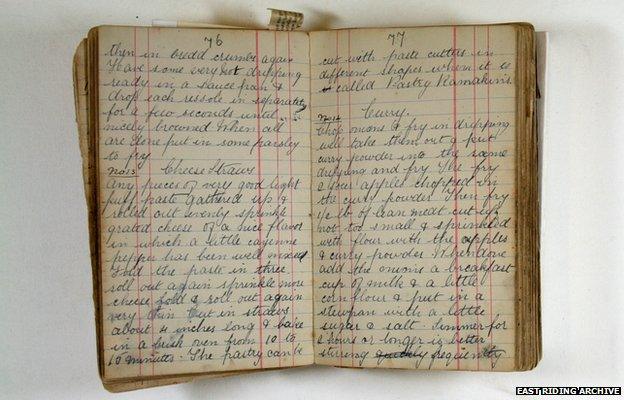 76
then in bread crumbs again
Have some very hot dripping
ready in a sauce pan &
drop each rissole in separately
for a few seconds until
nicely browned When all
are done put in some parsley
to fry
No 13 Cheese Straws
Any pieces of very good light
puff paste gathered up &
rolled out evenly sprinkle
grated cheese of a nice flavor
in which a little cayenne
pepper has been well mixed
Fold the paste in three
roll out again sprinkle more
cheese fold & roll out again
very thin Cut in straws
about 4 inches long & bake
in a brisk oven from 10 to
15 minutes. The pastry can be
77
cut with paste cutters in
different shapes when it is
called Pastry Ramakins.
No 14 Curry.
Chop onions & fry in dripping
well take them out & put
curry powder into the same
dripping and fry The fry
2 sour apples chopped in
the curry powder Then fry
lb of lean meat cut up
not too small & sprinkled
with flour with the apples
& curry powder When done
add the onions a breakfast
cup of milk & a little
cornflour & put in a
stewpan with a little
sugar & salt. Simmer for
2 hours or longer is better
stirring quickly frequently
EAST RIDING ARCHIVE